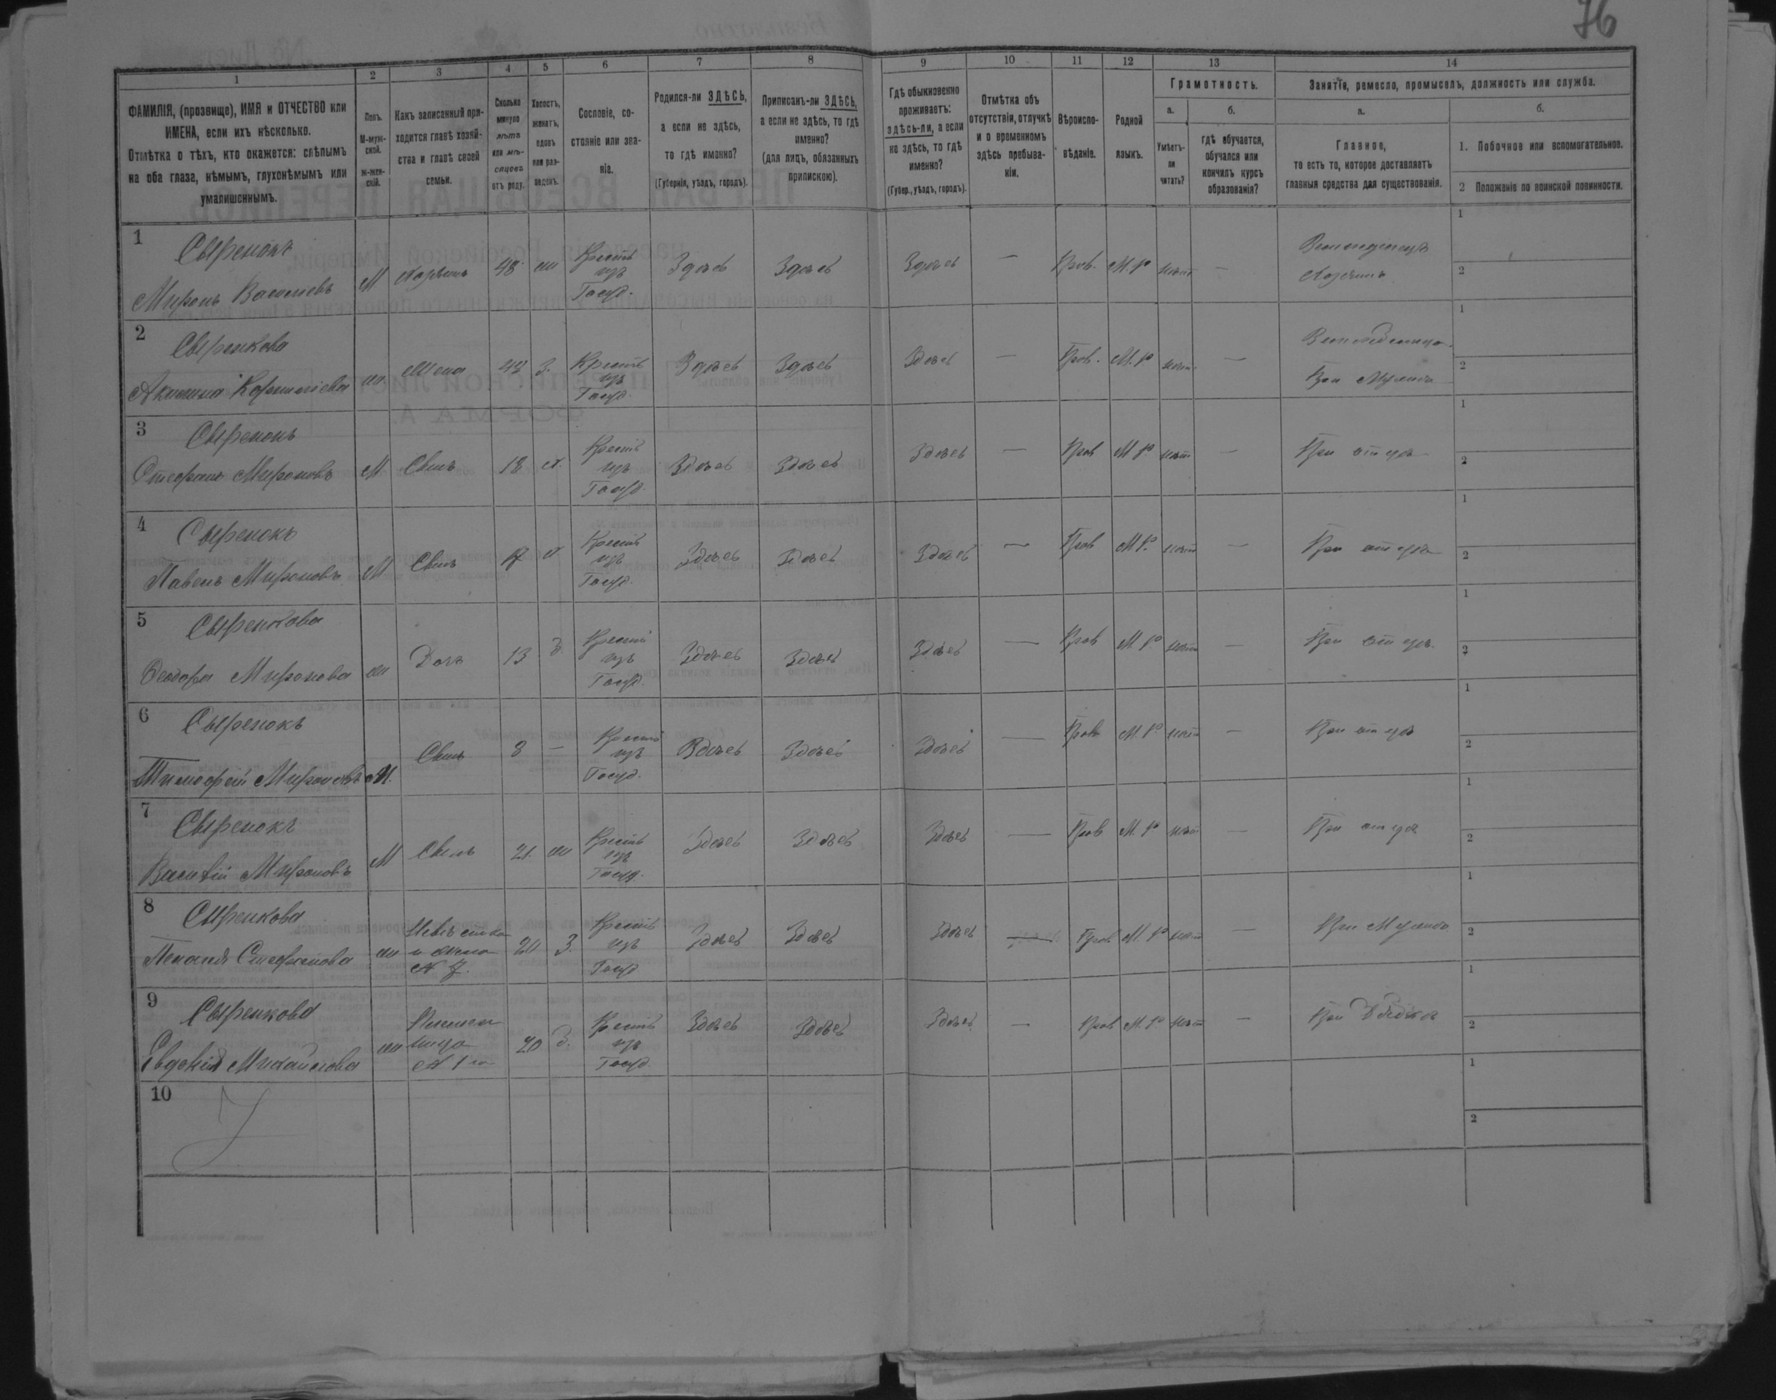 76
1 2 3 4 5 6 7 8 9 10 11 12 13 14
ФАМИЛІЯ, (прозвище), ИМЯ и ОТЧЕСТВО или
ИМЕНА, если ихъ нѣсколько.
Отмѣтка о тѣхъ, кто окажется: слѣпымъ
на оба глаза, нѣмымъ, глухонѣмымъ или
умалишеннымъ.
Полъ.
М-муж-
ской.
Ж-жен-
скій.
Какъ записанный при-
ходится главѣ хозяй-
ства и главѣ своей
семьи.
Сколько
минуло
лѣтъ
или мѣ-
сяцевъ
отъ роду.
Холостъ,
женатъ,
вдовъ
или раз-
веденъ.
Сословіе, со-
стояніе или зва-
ніе.
Родился-ли ЗДѢСЬ,
а если не здѣсь,
то гдѣ именно?
(Губернія, уѣздъ, городъ).
Приписанъ-ли ЗДѢСЬ,
а если не здѣсь, то гдѣ
именно?
(для лицъ, обязанныхъ
припискою).
Гдѣ обыкновенно
проживаетъ:
здѣсь-ли, а если
не здѣсь, то гдѣ
именно?
(Губер., уѣздъ, городъ).
Отмѣтка объ
отсутствіи, отлучкѣ
и о временномъ
здѣсь пребыва-
ніи.
Вѣроиспо-
вѣданіе.
Родной
языкъ.
Грамотность.
а.
Умѣетъ-
ли
читать?
б.
гдѣ обучается,
обучался или
кончилъ курсъ
образованія?
Занятія, ремесло, промыселъ, должность или служба.
а.
Главное,
то есть то, которое доставляетъ
главныя средства для существованія.
б.
1. Побочное или вспомогательное.
2 Положеніе по воинской повинности.
1
Сыренокъ
Миронъ
М
48
Крест
изъ
Госуд.
Здѣсь Здѣсь Здѣсь — Прав. М.Р нѣт —
1
2
2
Сыренкова
Жена
З.
Крест
изъ
Госуд.
Здѣсь Здѣсь Здѣсь — Прав. М.Р нѣт —
При Мужѣ
1
2
3
Сыренокъ
Стефанъ Мироновъ
М Сынъ 18
Крест
изъ
Госуд
Здѣсь Здѣсь Здѣсь — Прав М Р нѣт —
При отцѣ
1
2
4
Сыренокъ
Павелъ Мироновъ
М Сынъ
Крест
изъ
Госуд.
Здѣсь Здѣсь Здѣсь — Прав М Р. нѣт —
При отцѣ
1
2
5
Сыренкова
Феодора Миронова
Дочь 13 д
Крест
изъ
Госуд.
Здѣсь Здѣсь Здѣсь — Прав М Р нѣт —
При отцѣ
1
2
6
Сыренокъ
Тимофей Мироновъ
М. Сынъ —
Крест
изъ
Госуд.
Здѣсь Здѣсь Здѣсь — Прав М. Р нѣт —
При отцѣ
1
2
7
Сыренокъ
Василій Мироновъ
М Сынъ 21
Крест
изъ
Госуд.
Здѣсь Здѣсь Здѣсь — Прав М. Р нѣт —
При отцѣ
1
2
8
Сыренкова
Стефанова
Невѣстка
и жена
№ 7.
З.
Крест
изъ
Госуд
Здѣсь Здѣсь Здѣсь — Прав М. Р нѣт —
При Мужѣ
1
2
9
Сыренкова
Евдокія Михайлова
20 д.
Крест
изъ
Госуд
Здѣсь Здѣсь Здѣсь — Прав М. Р нѣт —
При
1
2
10
1
2